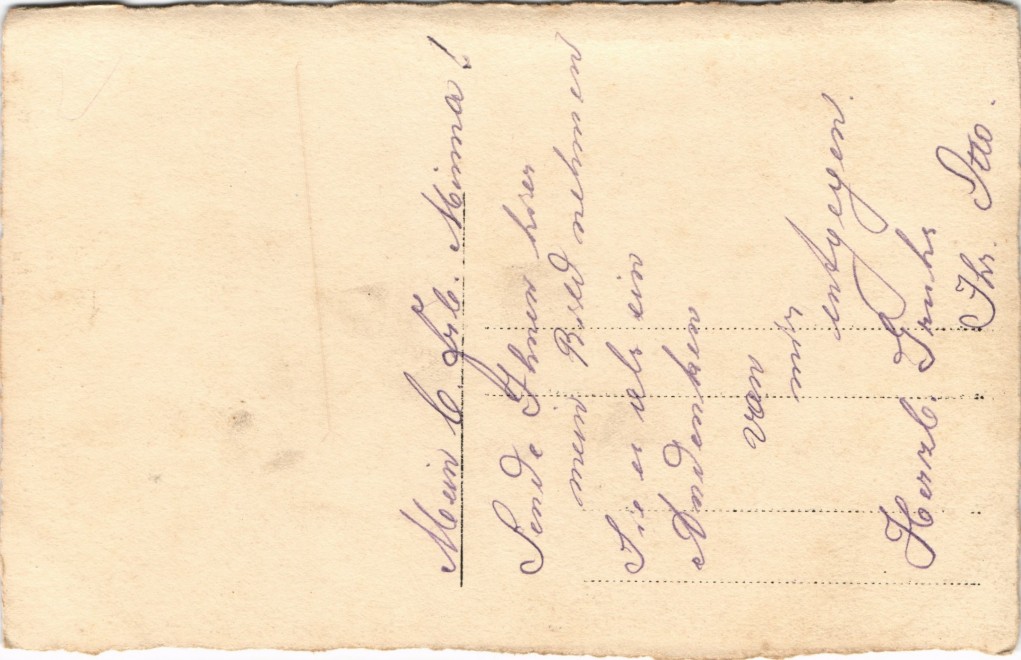 Mein l. Frl. Minna!
Sende Ihnen hier
mein Bild nehmen
Sie es als ein
Andenken
von
mir
entgegen.
Herzl. Gruß
Ihr. Otto.